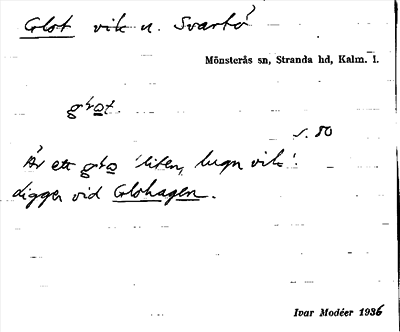 Glot vik u. Svartö
Mönsterås sn, Stranda hd, Kalm. l.
s. 80
Är ett 'liten, lugn vik'.
Ligger vid Glohagen.
Ivar Modéer 1936